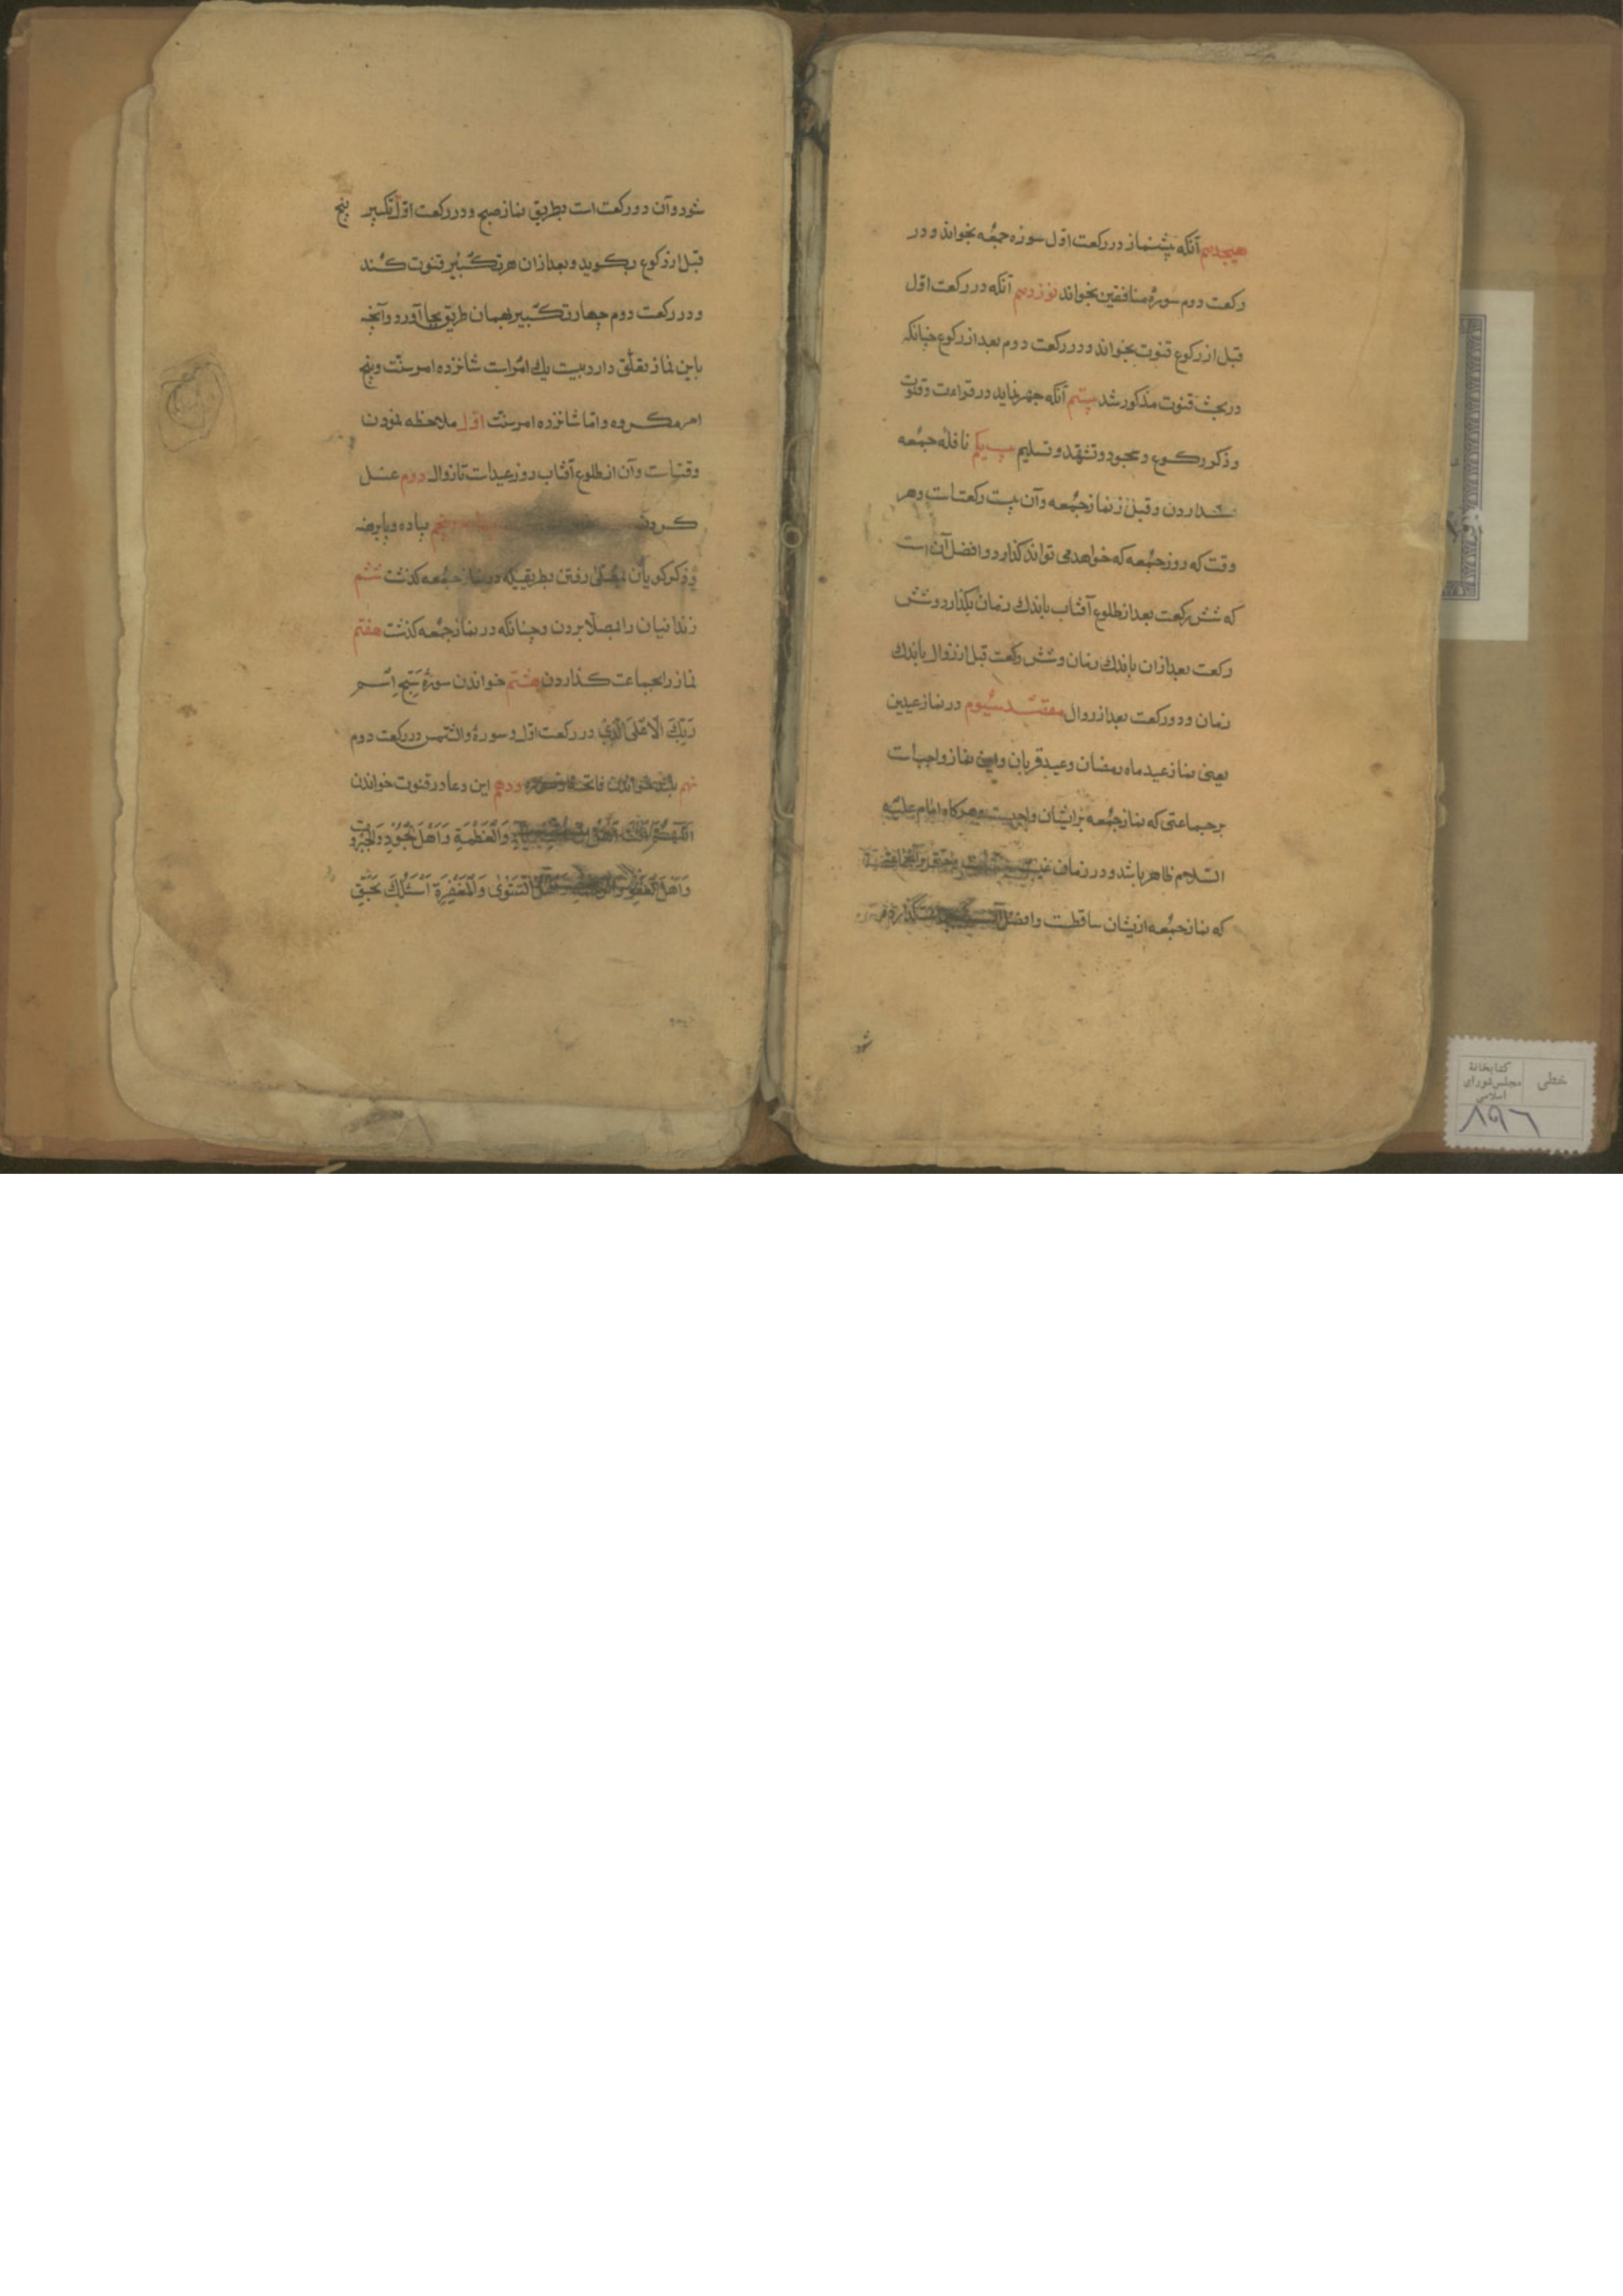 هیجدهم آنکه پیشنماز در رکعت اوّل سوره جمُعه بخواند و در
رکعت دوم سورهٔ منافقین بخواند نوزدهم آنکه در رکعت اوّل
قبل از رکوع قنوت بخواند و در رکعت دوم بعد از رکوع چنانکه
در بحث قنوت مذکور شد بیستم آنکه جهر نماید در قراءت و قنوت
و ذکر رکوع و سجود و تشهّد و تسلیم بیست یکم نافلهٔ جمُعه
کذاردن و قبل از نماز جمُعه و آن بیست رکعت است و هر
وقت که روز جمُعه که خواهد می تواند کذارد و افضل آن است
که شش رکعت بعد از طلوع آفتاب باندك زمان بکذارد و شش
رکعت بعد از آن باندك زمان و شش رکعت قبل از زوال باندك
زمان و دو رکعت بعد از زوال مقصد سیُوم در نماز عیدین
یعنی نماز عید ماه رمضان و عید قربان و این نماز واجب است
بر جماعتی که نماز جمُعه بر ایشان واجبست و هرکاه امام علیه
السّلام ظاهر باشد و در زمان
که نماز جمُعه از یشان ساقطست و افضل آنست
شود
شود و آن دو رکعت است بطریق نماز صبح و در رکعت اوّل تکبیر پنج
قبل از رکوع بکوید و بعد از ان هر تکبیر قنوت کند
و در رکعت دوم چهار تکبیر بهمان طریق بجا آورد و آنچه
باین نماز تعلّق دارد بیست یك امر است شانزده امر سنّت و پنج
امر مکروه و امّا شانزده امر سنّت اوّل ملاحظه نمودن
وقتست و آن از طلوع آفتاب روز عید است تا زوال دوم غسل
کردن پیاده و پا برهنه
و ذکر کویان بمصلی رفتن بطریقیکه در نماز جمُعه کذشت ششم
زندانیان را بمصلّا بردن و چنانکه در نماز جمُعه کذشت هفتم
نماز را بجماعت کذاردن هشتم خواندن سورهٔ سَبِّحِ اسْم
رَبِّكَ الْاَعْلَى الَّذِي در رکعت اوّل و سورهٔ والشّمس در رکعت دوم
نهم بلند خواندن فاتحه و سوره دهم این دعا در قنوت خواندن
اَللّٰهُمَّ وَالْعَظَمَةِ وَاَهْلَ الْجُوْدِ وَالْجَبَرُوتِ
وَاَهْلَ الْعَفْوِ وَالرَّحْمَةِ وَاَهْلَ التَّقْوٰى وَالْمَغْفِرَةِ اَسْئَلُكَ بِحَقِّ
خطی
کتابخانهٔ
مجلس شورای
اسلامی
۸۹۶